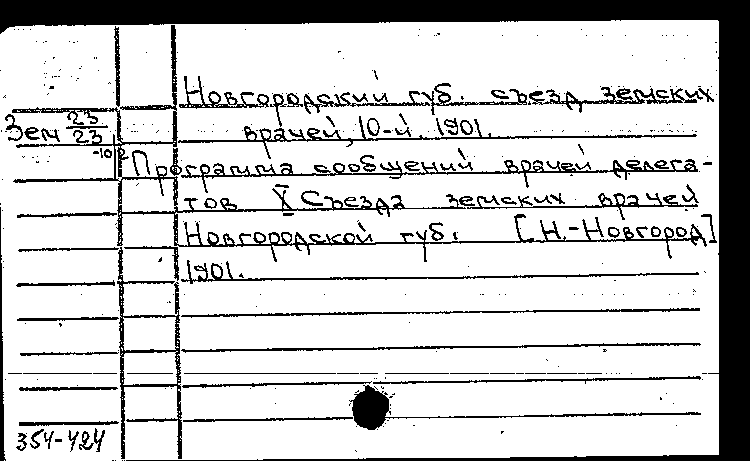 Новгородский губ. съезд земских
Зем 23/23
врачей, 10-й. 1901.
-10/2
Программа сообщений врачей делега-
тов X Съезда земских врачей
Новгородской губ. [Н.-Новгород]
1901.
354-424